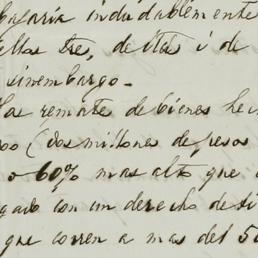 bajaria indudablemente
ellas tre, de ltas i de
sinembargo.-
remate de bienes he
(dos millones de pesos
o 60% mas alto que
gado con un derecho de
que corren a mas del 50